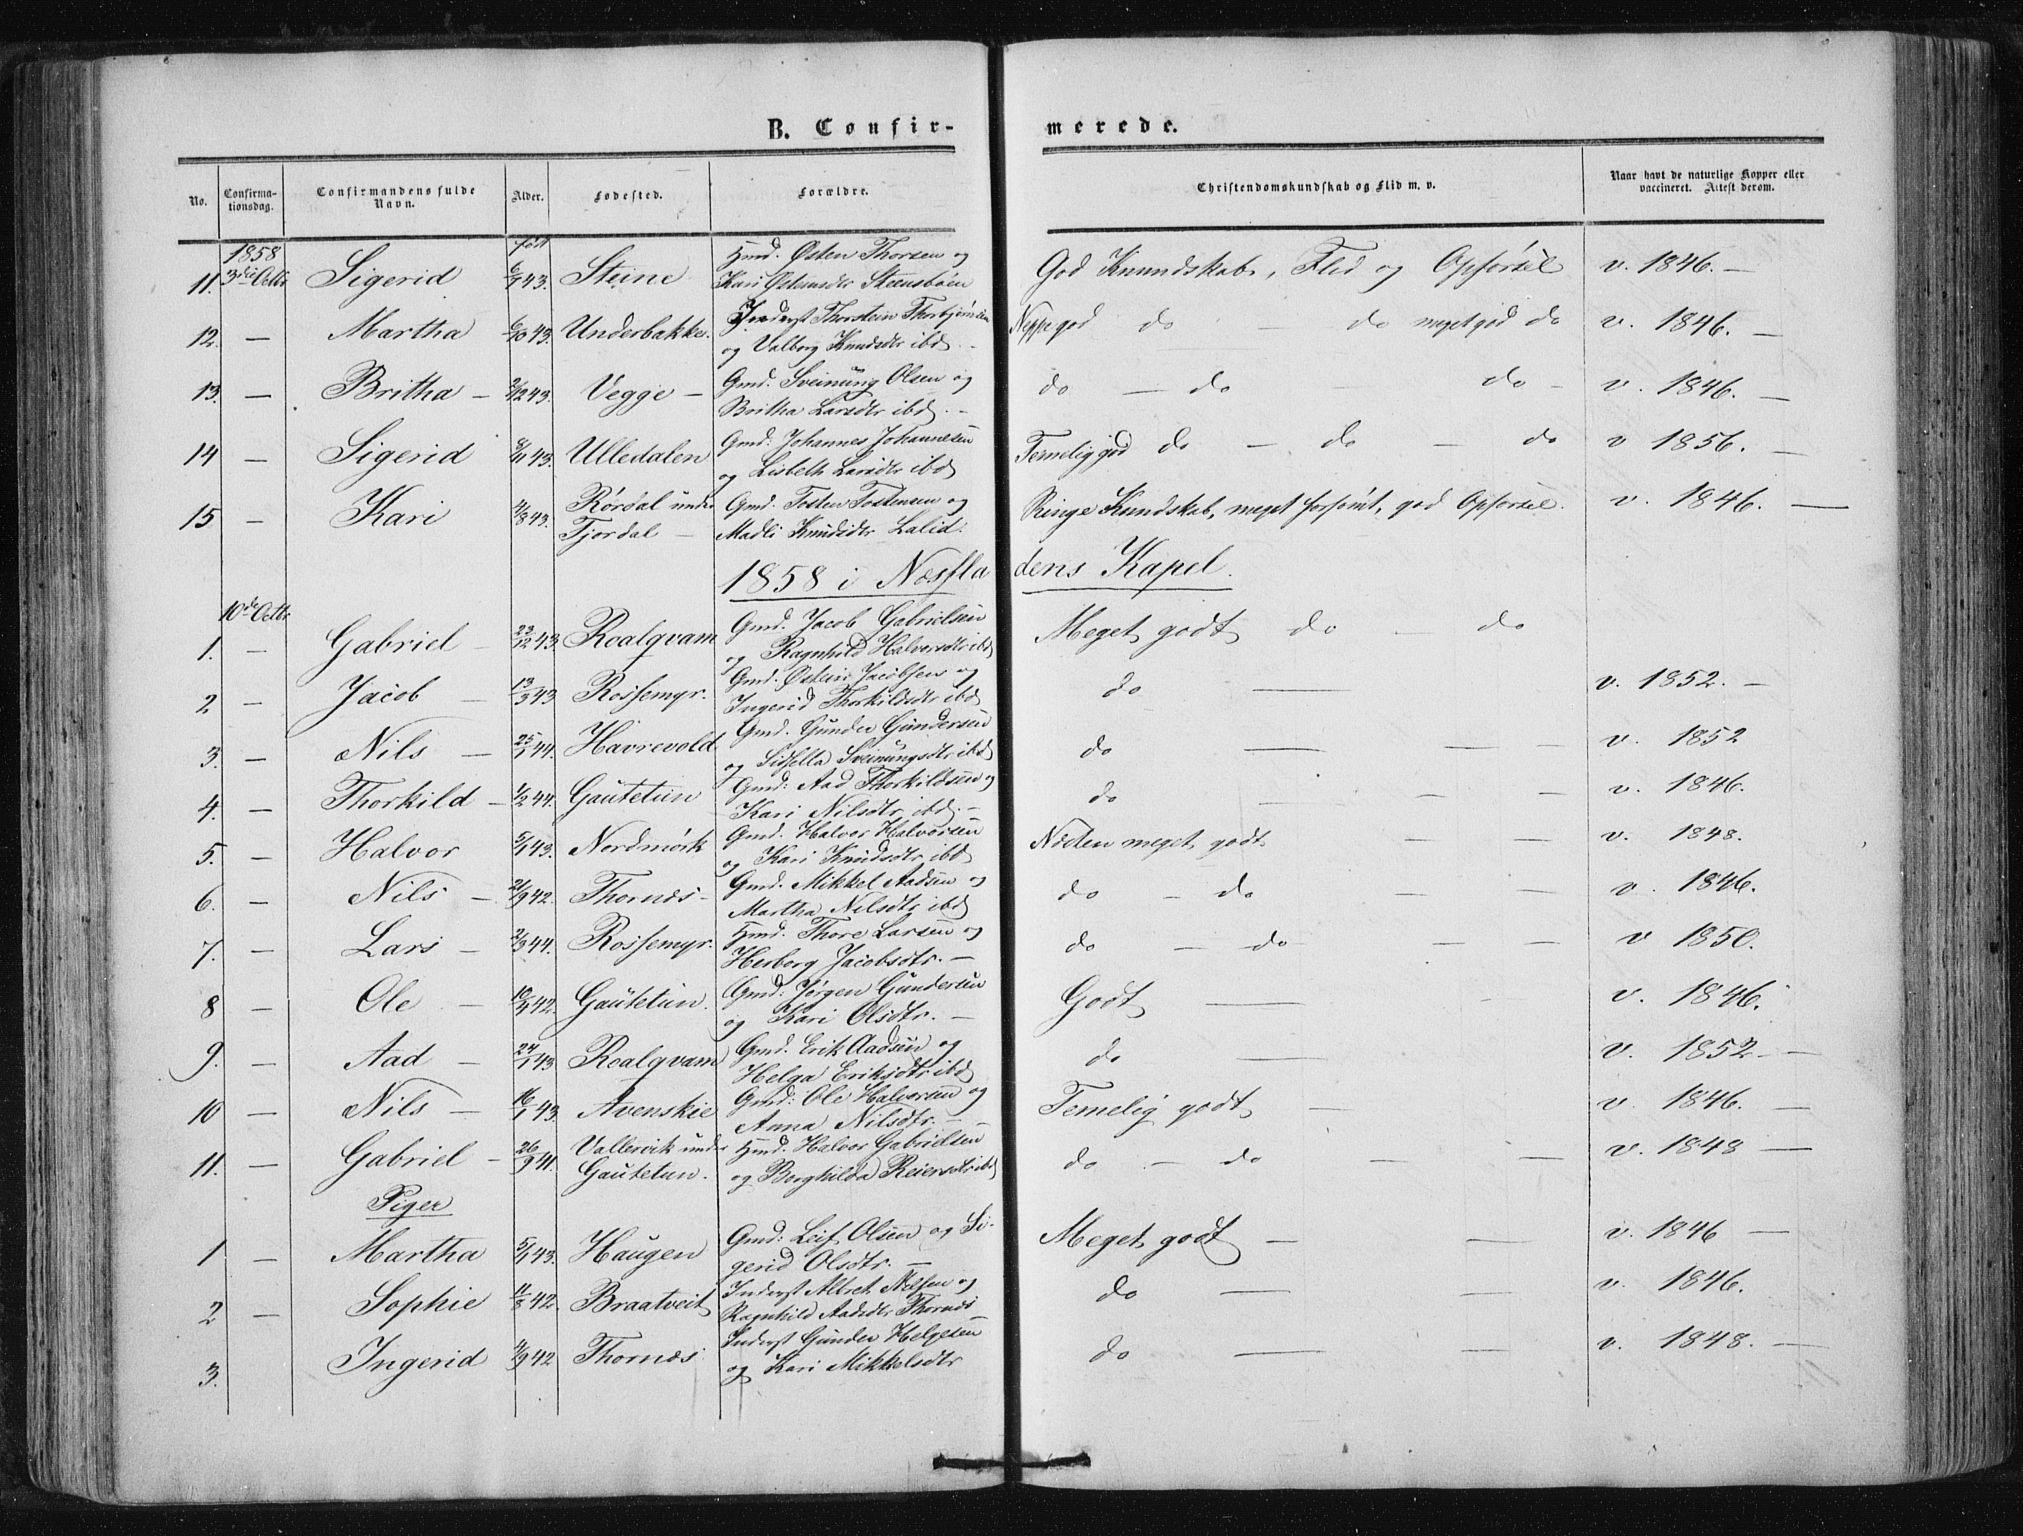 B. Confir-
merede.
No.
Confirma-
tionsdag.
Confirmandens fulde
Navn.
Alder.
Fødested.
Forældre.
Christendomskundskab og Flid m. v.
Naar havt de naturlige Kopper eller
vaccineret. Attest derom.
1858
født
11. 3die Octbr Sigerid 6/7 43. Steine Hmd. Østen Thorsen og
Kari Østensdtr Steensbøen
God Kundskab, Flid og Opførsel v. 1846. —
12. — Martha 6/10 43. Underbakke. Inderst Thorstein Thorbjørnsen
og Valborg Knudsdtr ibd. —
Neppe god do — do meget god do v. 1846. —
13. — Britha — 2/12 43. Vegge — Gmd. Sveinung Olsen og
Britha Larsdtr ibd. —
do — do — do — v. 1846. —
14 — Sigerid 8/11 43. Ulledalen Gmd: Johannes Johannesen
og Lisbeth Larsdtr ibd
Temelig god do — do — do v 1856. —
15 — Kari 4/8 43. Rørdal under
Fjordal — Gmd. Tosten Tostensen og
Madli Knudsdtr Lalid.
Ringe Kundskab, meget forsømt, god Opførsel. v. 1846. —
1858 i Næsfla
dens Kapel.
10de Octbr
1. — Gabriel — 23/12 43. Roalqvam Gmd. Jacob Gabrielsen
og Ragnhild Halvorsdtr ibd
Meget godt do — do
2 — Jacob — 13/3 43 Rossemyr. Gmd. Østein Jacobsen og
Ingerid Thorkildsdtr ibd
do — v. 1852. —
3. — Nils — 25/1 44. Havrevold Gmd. Gunder Gundersen
og Sidsella Sveinungsdtr ibd
do — — — v. 1852
4. — Thorkild — 1/2 44. Gautetun Gmd: Aad Thorkildsen og
Kari Nilsdtr ibd. —
do — — — v. 1846.
5. — Halvor 5/1 43. Nordmørk Gmd. Halvor Halvorsen
og Kari Knudsdtr ibd
Næsten meget godt — — v. 1848.
6. — Nils — 21/9 42. Thornæs — Gmd. Mikkel Aadsen og
Martha Nilsdtr ibd
do — do — — v. 1846.
7. — Lars — 2/3 44. Rossemyr. Hmd. Thore Larsen og
Herborg Jacobsdtr. —
do — do — — v 1850.
8 — Ole — 42. Gautetun. Gmd: Jørgen Gundersen
og Kari Olsdtr. —
Godt — — v. 1846.
9. — Aad — 24/1 43. Roalqvam Gmd. Erik Aadsen og
Helga Eriksdtr ibd
do — v. 1852. —
10 — Nils — 16/1 43. Avenskie Gmd: Ole Halvorsen og
Anna Nilsdtr. —
Temelig godt — — v. 1846. —
11. — Gabriel — 26/9 41. Vallervik under
Gautetun. Hmd. Halvor Gabrielsen
og Borghilda Reiersdtr ibd
do — do — — v. 1848 —
Piger
1 — Martha 5/1 43. Haugen Gmd: Leif Olsen og Si-
gerid Olsdtr. —
Meget godt — — v. 1846 —
2 — Sophie 11/8 42. Braatveit Inderst Nilsen og
Ragnhild Aadsdtr Thornæs
do — — v. 1846. —
3. Ingerid 4/9 42 Thornæs Inderst Gunder Helgesen
og Kari Mikkelsdtr
do — — v. 1848. —